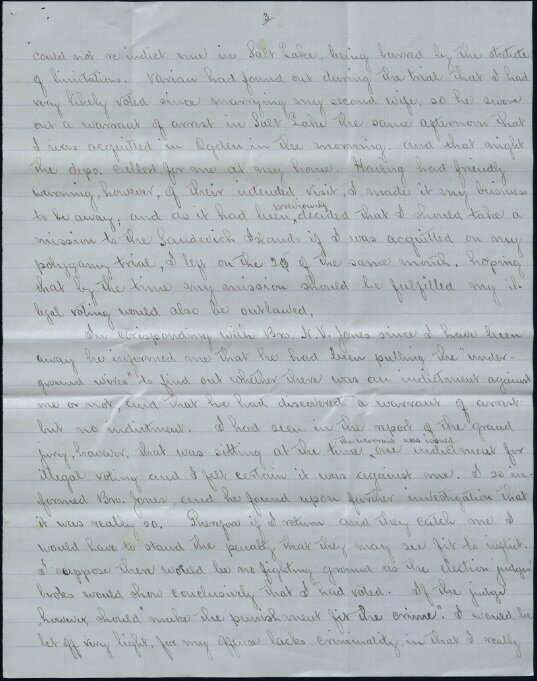 3
could not re-indict me in Salt Lake, being barred by the statute
of limitations. Varian had found out during the trial that I had
very likely voted since marrying my second wife, so he swore
out a warrant of arrest in Salt Lake the same afternoon that
I was acquitted in Ogden in the morning. and that night
the deps. called for me at my home. Having had friendly
warning, however, of their intended visit, I made it my business
to be away, and as it had been previously decided that I should take a
mission to the Sandwich Islands if I was acquitted on my
polygamy trial, I left on the of the same month. hoping
that by the time my mission should be fulfilled my il-
legal voting would also be outlawed.
In corisponding with Bro. N.V. Jones since I have been
away he informed me that he had been pulling the under-
ground wires" to find out whether there was an indictment against
me or not, and that he had discovered a warrant of arrest-
but no indictment. I had seen in the report of the grand
jury, however, that was sitting at the time the warrant was issued, one indictment for
illegal voting and I felt certain it was against me. I so in-
formed Bro. Jones, and he found upon further investigation that
it was really so. Therefore if I return and they catch me I
would have to stand the penalty that they may see fit to inflict.
I suppose there would be no fighting ground as the election judges
books would show conclusively that I had voted. If the judge
, however, should "make the punishment fit the crime". I would be
let off very light, for my offince lacks criminality, in that I really